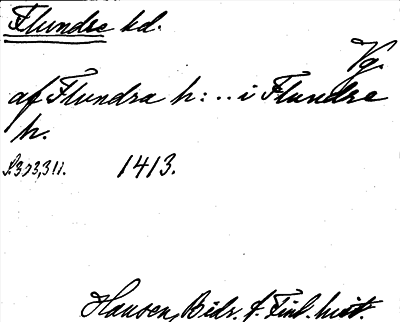 Flundre hd.
Vg.
af Flundra h: .. i Flundre
h.
1413.
Hausen, Bidr. t. Finl. hist.